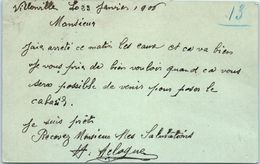 Villonville Le 22 Janvier 1906
13
Monsieur
J'ai arreté ce matin les eaux et ca va bien
Je vous prie de bien vouloir quand ca vous
sera possible de venir pour poser le

Je suis prête
Recevez Monsieur Mes Salutations
H.